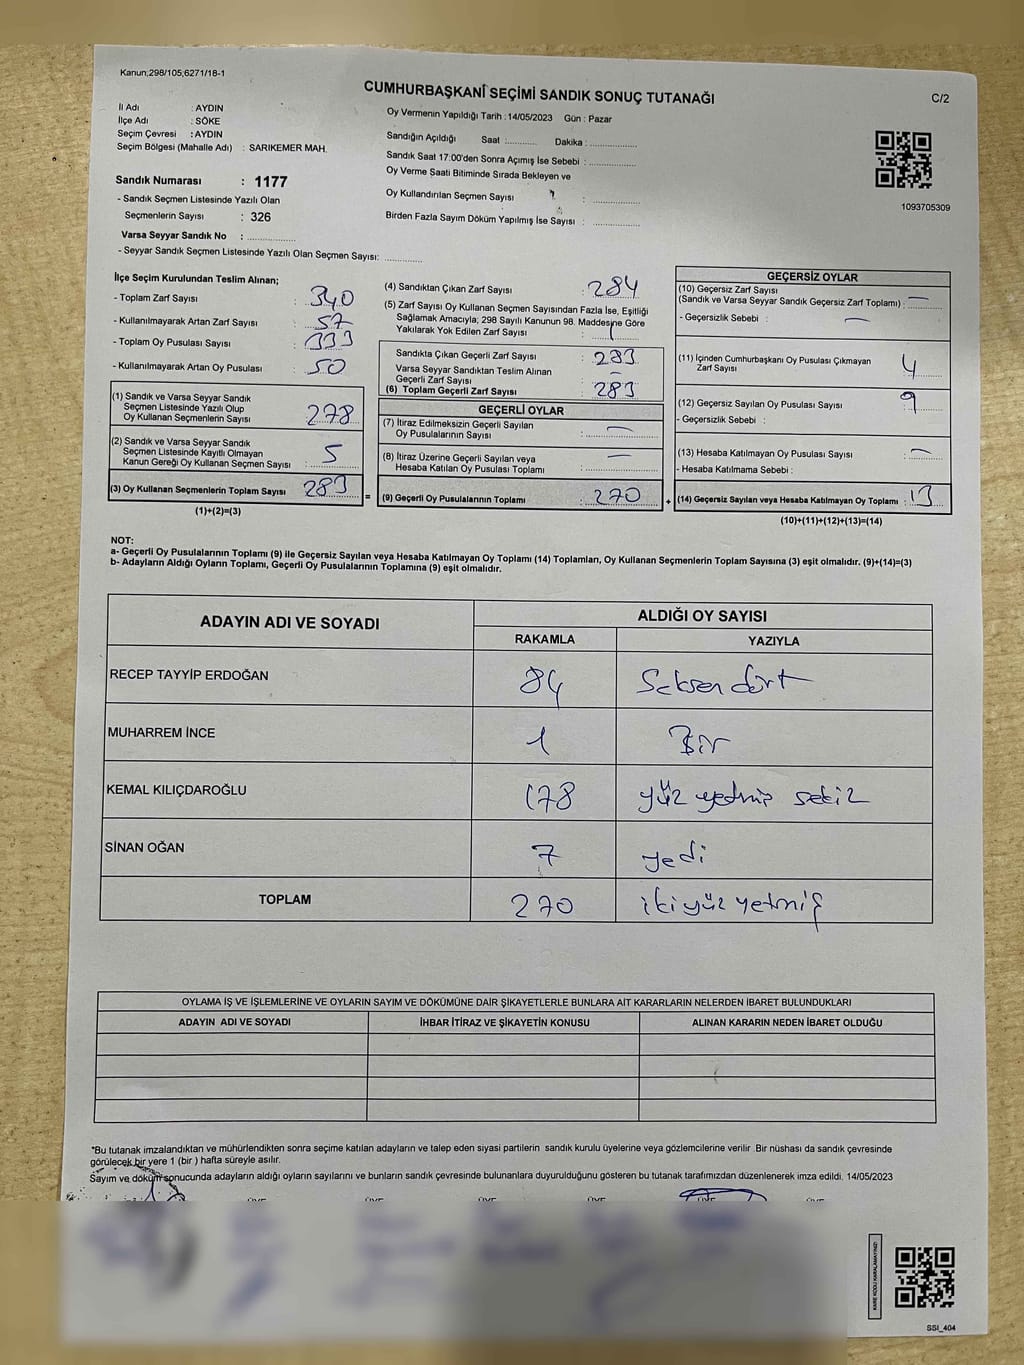 Kanun;298/105;6271/18-1
CUMHURBAŞKANI SEÇİMİ SANDIK SONUÇ TUTANAĞI
C/2
İl Adı : AYDIN
İlçe Adı : SÖKE
Seçim Çevresi : AYDIN
Seçim Bölgesi (Mahalle Adı) : SARIKEMER MAH.
Sandık Numarası : 1177
- Sandık Seçmen Listesinde Yazılı Olan
Seçmenlerin Sayısı : 326
Varsa Seyyar Sandık No : ..............
- Seyyar Sandık Seçmen Listesinde Yazılı Olan Seçmen Sayısı: ............
Oy Vermenin Yapıldığı Tarih : 14/05/2023 Gün : Pazar
Sandığın Açıldığı Saat ........... Dakika : ..............
Sandık Saat 17:00'den Sonra Açımış İse Sebebi : ..............
Oy Verme Saati Bitiminde Sırada Bekleyen ve
Oy Kullandırılan Seçmen Sayısı : ..............
Birden Fazla Sayım Döküm Yapılmış İse Sayısı : ..............
1093705309
İlçe Seçim Kurulundan Teslim Alınan;
- Toplam Zarf Sayısı : 340
- Kullanılmayarak Artan Zarf Sayısı : 57
- Toplam Oy Pusulası Sayısı : 333
- Kullanılmayarak Artan Oy Pusulası : 50
(1) Sandık ve Varsa Seyyar Sandık
Seçmen Listesinde Yazılı Olup
Oy Kullanan Seçmenlerin Sayısı : 278
(2) Sandık ve Varsa Seyyar Sandık
Seçmen Listesinde Kayıtlı Olmayan
Kanun Gereği Oy Kullanan Seçmen Sayısı : 5
(3) Oy Kullanan Seçmenlerin Toplam Sayısı 283
(1)+(2)=(3)
=
(4) Sandıktan Çıkan Zarf Sayısı : 284
(5) Zarf Sayısı Oy Kullanan Seçmen Sayısından Fazla İse, Eşitliği
Sağlamak Amacıyla; 298 Sayılı Kanunun 98. Maddesine Göre
Yakılarak Yok Edilen Zarf Sayısı : 1
Sandıkta Çıkan Geçerli Zarf Sayısı : 283
Varsa Seyyar Sandıktan Teslim Alınan
Geçerli Zarf Sayısı : —
(6) Toplam Geçerli Zarf Sayısı : 283
GEÇERLİ OYLAR
(7) İtiraz Edilmeksizin Geçerli Sayılan
Oy Pusulalarının Sayısı : —
(8) İtiraz Üzerine Geçerli Sayılan veya
Hesaba Katılan Oy Pusulası Toplamı : —
(9) Geçerli Oy Pusulalarının Toplamı : 270
+
GEÇERSİZ OYLAR
(10) Geçersiz Zarf Sayısı
(Sandık ve Varsa Seyyar Sandık Geçersiz Zarf Toplamı) : —
- Geçersizlik Sebebi : —
(11) İçinden Cumhurbaşkanı Oy Pusulası Çıkmayan
Zarf Sayısı : 4
(12) Geçersiz Sayılan Oy Pusulası Sayısı : 9
- Geçersizlik Sebebi :
(13) Hesaba Katılmayan Oy Pusulası Sayısı : —
- Hesaba Katılmama Sebebi :
(14) Geçersiz Sayılan veya Hesaba Katılmayan Oy Toplamı : 13
(10)+(11)+(12)+(13)=(14)
NOT:
a- Geçerli Oy Pusulalarının Toplamı (9) ile Geçersiz Sayılan veya Hesaba Katılmayan Oy Toplamı (14) Toplamları, Oy Kullanan Seçmenlerin Toplam Sayısına (3) eşit olmalıdır. (9)+(14)=(3)
b- Adayların Aldığı Oyların Toplamı, Geçerli Oy Pusulalarının Toplamına (9) eşit olmalıdır.
ADAYIN ADI VE SOYADI
ALDIĞI OY SAYISI
RAKAMLA YAZIYLA
RECEP TAYYİP ERDOĞAN 84 Seksen dört
MUHARREM İNCE 1 Bir
KEMAL KILIÇDAROĞLU 178 yüz yetmiş sekiz
SİNAN OĞAN 7 yedi
TOPLAM 270 iki yüz yetmiş
OYLAMA İŞ VE İŞLEMLERİNE VE OYLARIN SAYIM VE DÖKÜMÜNE DAİR ŞİKAYETLERLE BUNLARA AİT KARARLARIN NELERDEN İBARET BULUNDUKLARI
ADAYIN ADI VE SOYADI İHBAR İTİRAZ VE ŞİKAYETİN KONUSU ALINAN KARARIN NEDEN İBARET OLDUĞU
*Bu tutanak imzalandıktan ve mühürlendikten sonra seçime katılan adayların ve talep eden siyasi partilerin sandık kurulu üyelerine veya gözlemcilerine verilir. Bir nüshası da sandık çevresinde
görülecek bir yere 1 (bir ) hafta süreyle asılır.
Sayım ve döküm sonucunda adayların aldığı oyların sayılarını ve bunların sandık çevresinde bulunanlara duyurulduğunu gösteren bu tutanak tarafımızdan düzenlenerek imza edildi. 14/05/2023
ÜYE ÜYE ÜYE ÜYE ÜYE ÜYE
KARE KODU KARALAMAYINIZ!
SSI_404